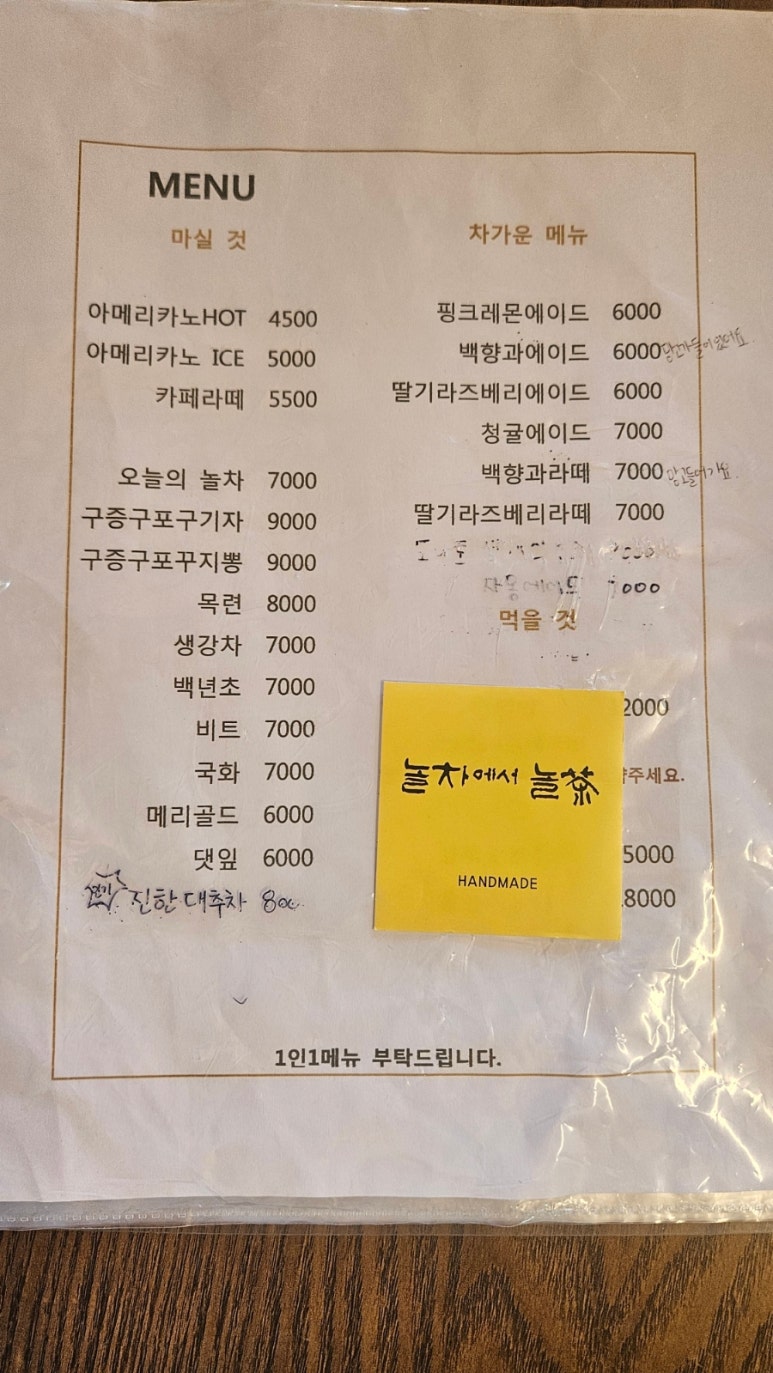 MENU
마실 것
아메리카노HOT 4500
아메리카노 ICE 5000
카페라떼 5500
오늘의 놀차 7000
구증구포구기자 9000
구증구포꾸지뽕 9000
목련 8000
생강차 7000
백년초 7000
비트 7000
국화 7000
메리골드 6000
댓잎 6000
진한 대추차
차가운 메뉴
핑크레몬에이드 6000
백향과에이드 6000
딸기라즈베리에이드 6000
청귤에이드 7000
백향과라떼 7000
딸기라즈베리라떼 7000
먹을 것
2000
주세요.
5000
8000
놀차에서 놀茶
HANDMADE
1인1메뉴 부탁드립니다.